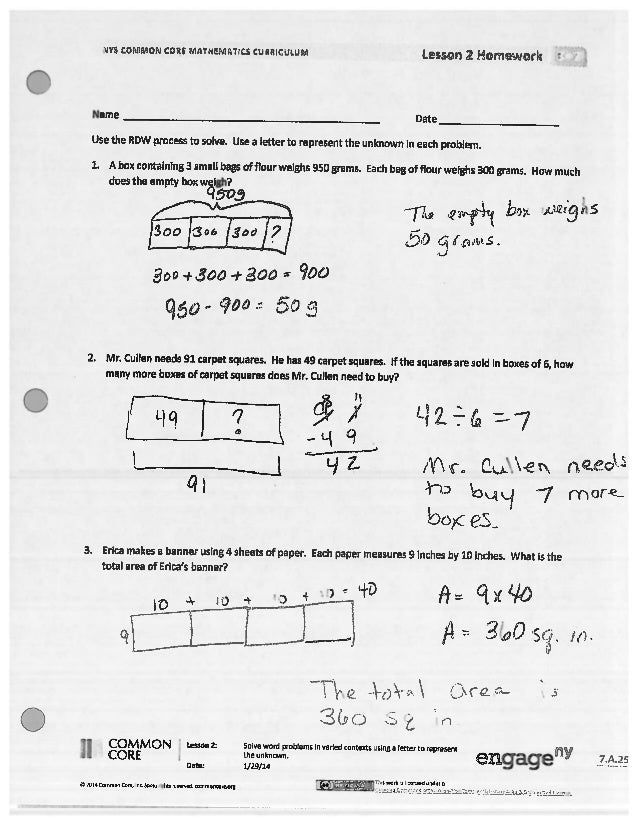 NYS COMMON CORE MATHEMATICS CURRICULUM
Lesson 2 Homework
Name
Date
Use the RDW process to solve. Use a letter to represent the unknown in each problem.
1. A box containing 3 small bags of flour weighs 950 grams. Each bag of flour weighs 300 grams. How much
does the empty box weigh?
950g
300 300 300 ?
The empty box weighs
50 grams.
300 + 300 + 300 = 900
950 - 900 = 50 g
2. Mr. Cullen needs 91 carpet squares. He has 49 carpet squares. If the squares are sold in boxes of 6, how
many more boxes of carpet squares does Mr. Cullen need to buy?
49 ?
91
8 11
9 1
- 4 9
4 2
42 ÷ 6 = 7
Mr. Cullen needs
to buy 7 more
boxes.
3. Erica makes a banner using 4 sheets of paper. Each paper measures 9 inches by 10 inches. What is the
total area of Erica's banner?
10 + 10 + 10 + 10 = 40
9
A = 9 x 40
A = 360 sq. in.
The total area is
360 sq in.
COMMON
CORE
Lesson 2:
Date:
Solve word problems in varied contexts using a letter to represent
the unknown.
1/29/14
engage ny
7.A.25
© 2014 Common Core, Inc. Some rights reserved. commoncore.org
This work is licensed under a